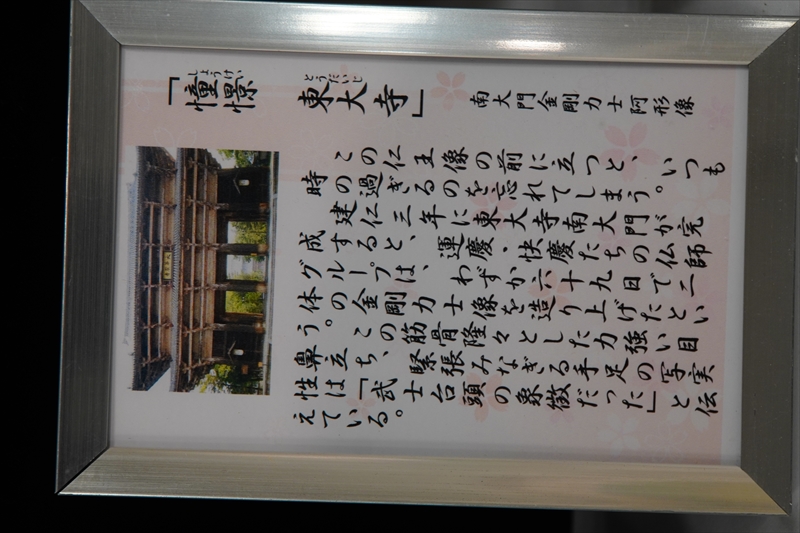 「憧憬 東大寺」
しょうけい とうだいじ
南大門金剛力士阿形像
この仁王像の前に立つと、いつも
時の過ぎるのを忘れてしまう。
建仁三年に東大寺南大門が完
成すると、運慶・快慶たちの仏師
グループは、わずか六十九日で二
体の金剛力士像を造り上げたとい
う。この筋骨隆々とした力強い目
鼻立ち、緊張みなぎる手足の写実
性は「武士台頭の象徴だった」と伝
えている。